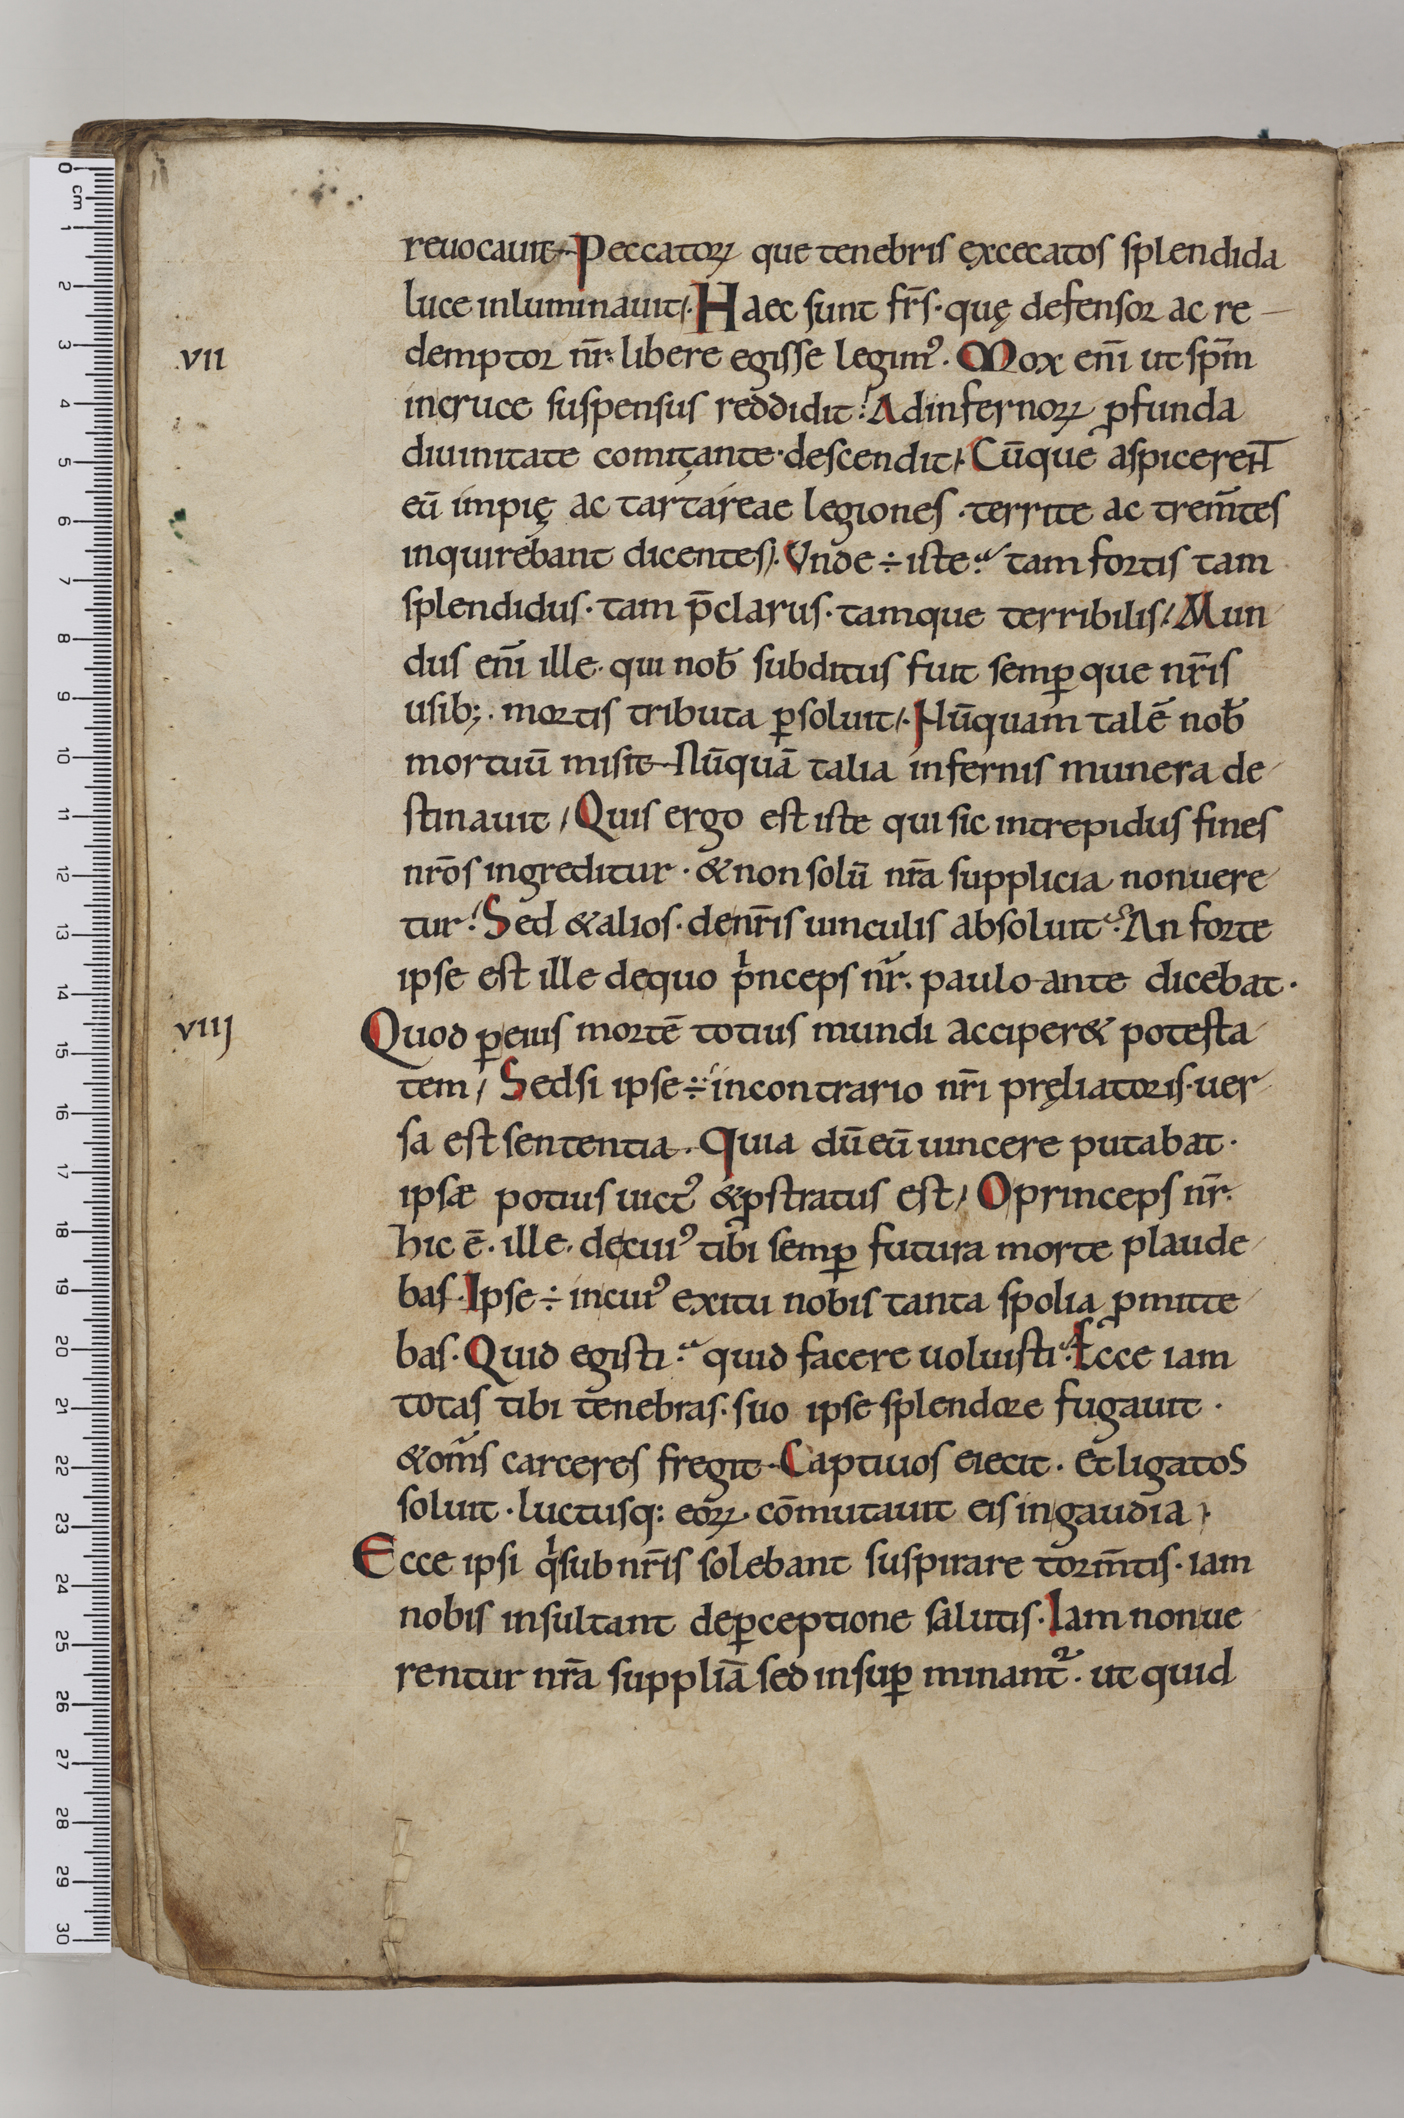 reuocauit. Peccatorꝝ que tenebris ęxcecatos splendida
luce inluminauit. Haec sunt fr̄s. quę defensor ac re
vii
demptor nr̄. libere egisse legimꝰ. Mox eni̅ ut sp̅m
incruce suspensus reddidit. Adinfernorꝝ ꝓfunda
diuinitate comitante. descendit. Cu̅que aspicerent
eu̅ impię ac tartareae legiones. territe ac trem̅tes
inquirebant dicentes. Vnde ÷ iste. tam fortis tam
splendidus. tam p̅clarus. tamque terribilis. Mun
dus eni̅ ille. qui nob̅ subditus fuit semꝑ que nr̅is
usib;. mortis tributa ꝑsoluit. Nu̅quam tale̅ nob̅
mortuu̅ misit. Nu̅qua̅ talia infernis munera de
stinauit. Quis ergo est iste qui sic intrepidus fines
nr̅os ingreditur. & non solu̅ nr̅a supplicia nonuere
tur. Sed & alios. denr̅is uinculis absoluit. An forte
ipse est ille dequo pͥnceps nr̅. paulo ante dicebat.
viij
Quod ꝑeius morte̅ totius mundi acciper& potesta
tem, Sedsi ipse ÷ incontrario nr̅i pręliatoris. uer
sa est sententia. Quia du̅ eu̅ uincere putabat.
ipsæ potius uictꝰ &ꝓstratus est, O princeps nr̅.
hic e̅. ille. decuiꝰ tibi semꝑ futura morte plaude
bas. Ipse ÷ incuiꝰ exitu nobis tanta spolia ꝓmitte
bas. Quid egisti. quid facere uoluisti. Ecce iam
totas tibi tenebras. suo ipse splendore fugauit.
&om̅s carceres fregit. Captiuos eiecit. Et ligatos
soluit. luctusq: eorꝝ. co̅mutauit eis ingaudia.
Ecce ipsi qͥ sub nr̅is solebant suspirare torm̅tis. iam
nobis insultant deꝑceptione salutis. Iam nonue
rentur nr̅a supplia̅ sed insuꝑ minant᷑. ut quid